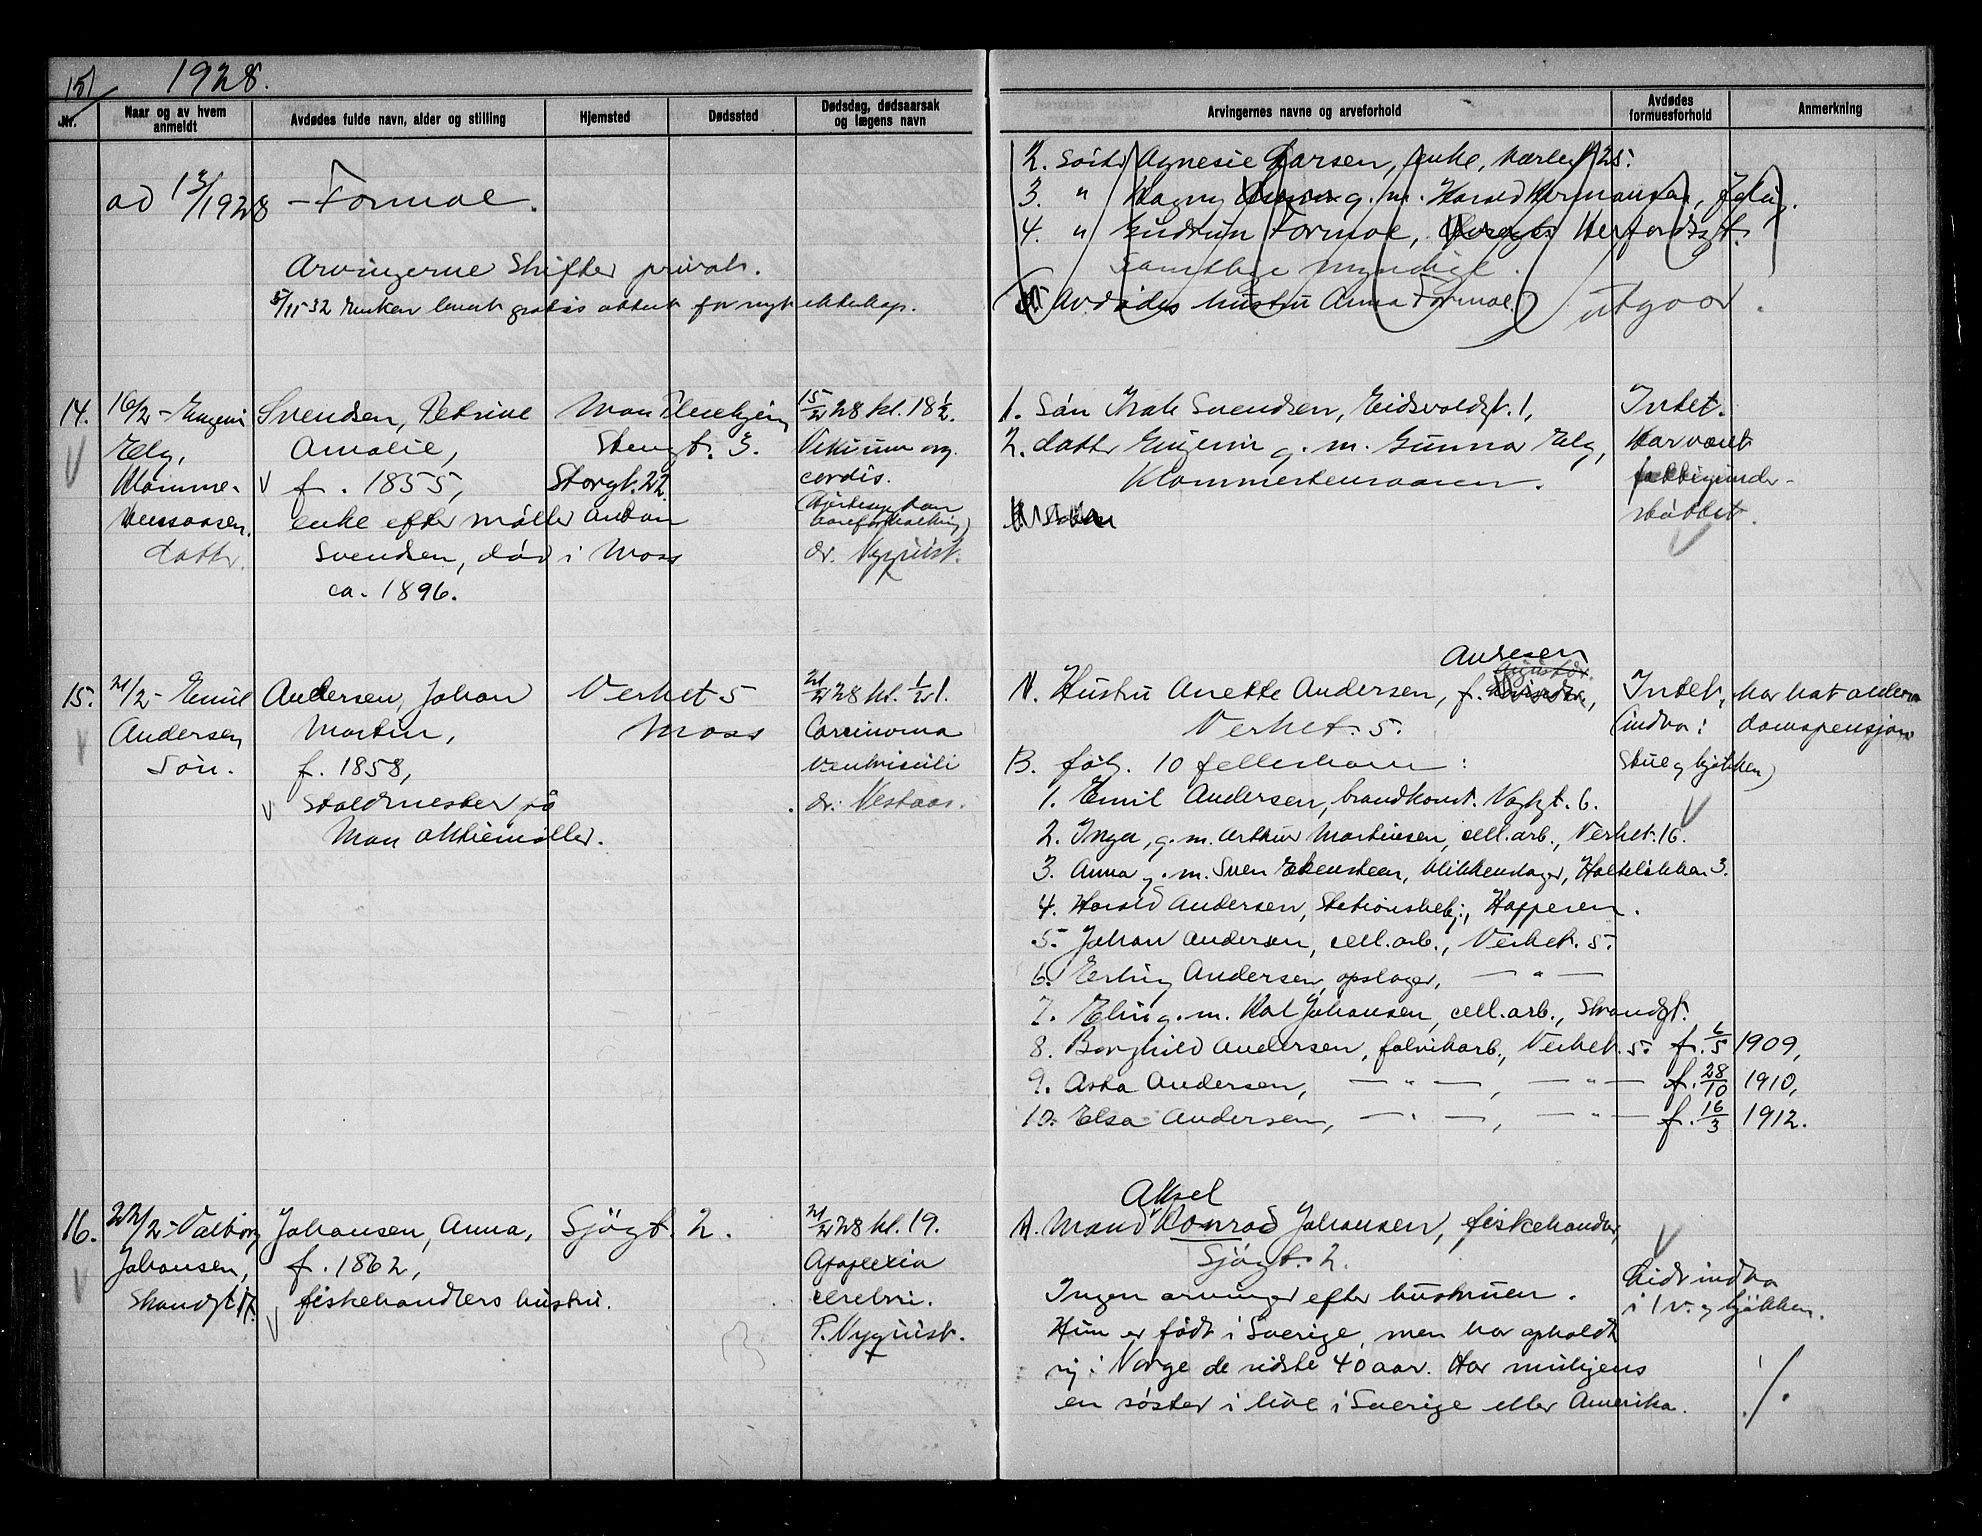 151
1928.
Nr.
Naar og av hvem anmeldt
Avdødes fulde navn, alder og stilling
Hjemsted
Dødssted
Dødsdag, dødsaarsak og lægens navn
Arvingernes navne og arveforhold
Avdødes formuesforhold
Anmerkning
ad 13/1928 - Formoe.
Arvingerne skifter privat.
5/11-32 Enken levert gratis attest for nyt ekteskap.
2. Søster Agnesie Larsen, enke, Værlegt. 25.
3. " Dagny g. m. Harald Hermansen, Jeløy.
4. " Gudrun Formoe, Herfordsgt.
Samtlige myndige.
Avdødes hustru Anna Formoe. utgaar.
14.
16/2 - Eugenie
Elg,
datter.
Svendsen, Petrine
Amalie,
f. 1855,
enke efter møller Anton
Svendsen, død i Moss
ca. 1896.
Moss Pleiehjem
Stengt. 3.
Storgt. 22.
15/2 28 kl. 18½.
Vitium org.
cordis.
dr. Nyquist.
1. Søn Isak Svendsen, Eidsvoldsgt. 1,
2. datter Eugenie g. m. Gunnar Elg,
Intet.
Har været
fattigunder-
støttet.
15.
21/2 - Emil
Andersen
Søn.
Andersen, Johan
Martin,
f. 1858,
Staldmester på
Moss Aktiemøller.
Verket 5
Moss
21/2 28 kl. ½1.
Carcinoma
ventriculi
dr. Vestaas.
A. Hustru Anette Andersen, f. Andresen,
Verket. 5.
B. følg. 10 fellesbarn:
1. Emil Andersen, brandkonst. Vogtgt. 6.
2. Inga, g. m. Arthur Martinsen, cell. arb., Verket. 16.
3. Anna g. m. Sven Ekensteen, blikkenslager, Holteløkken 3.
4. Harald Andersen, Stationsbetj., Kapperen.
5. Johan Andersen, cell. arb., Verket. 5.
6. Erling Andersen, opslager, — " —
7. Elin g. m. Karl Johansen, cell. arb., Strandgt.
8. Borghild Andersen, fabrikarb., Verket. 5. f. 6/5 1909,
9. Asta Andersen, — " —, — " — f. 28/10 1910,
10. Elsa Andersen, — " —, — " — f. 16/3 1912.
Intet,
(indbo:
Stue og kjøkken)
har hat alder-
domspensjon
16.
22/2 - Valborg
Johansen,
Strandgt. 17.
Johansen, Anna,
f. 1862,
fiskehandlers hustru.
Sjøgt. 2.
21/2 28 kl. 19.
Apoplexia
cerebri.
P. Nyquist.
Aksel
A. Mand Konrad Johansen, fiskehandler,
Sjøgt. 2.
Ingen arvinger efter hustruen.
Hun er født i Sverige, men har opholdt
sig i Norge de sidste 40 aar. Har muligens
en søster i live i Sverige eller Amerika.
Lidt indbo
i 1 v. og kjøkken.